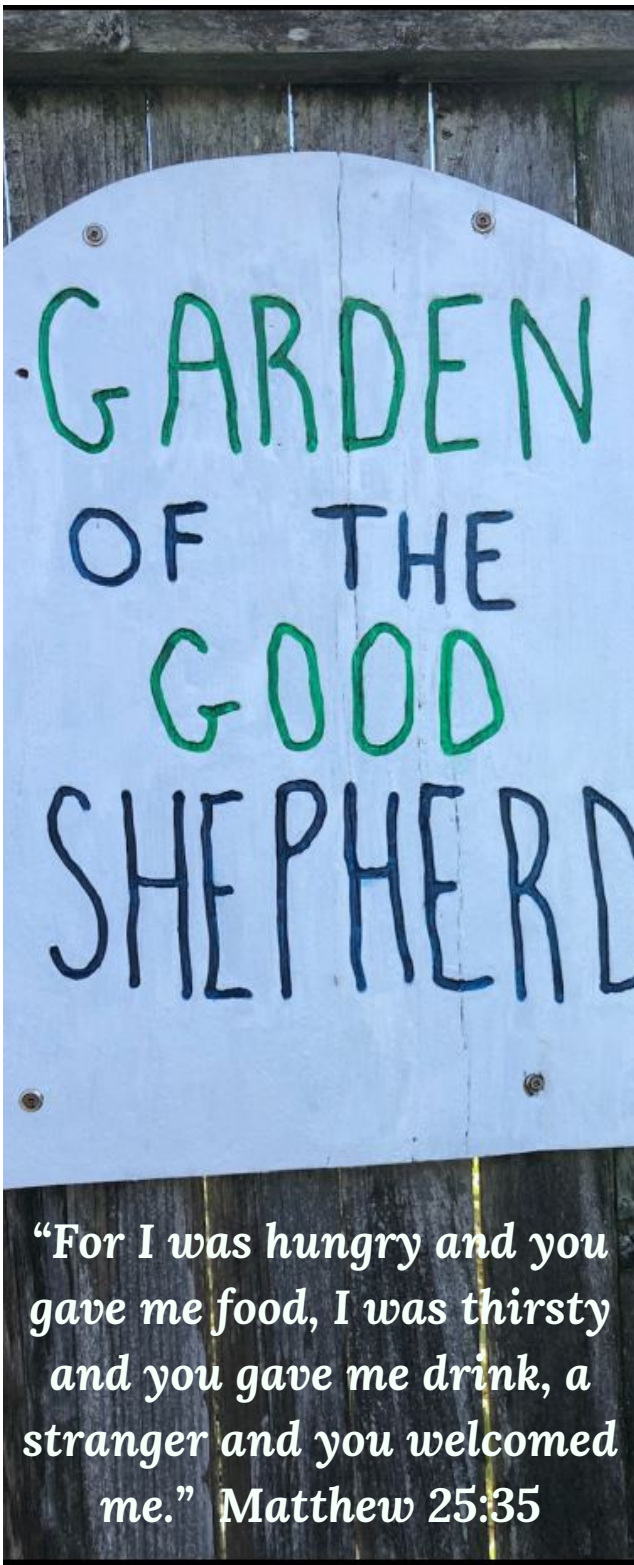 GARDEN
OF THE
GOOD
SHEPHERD
“For I was hungry and you
gave me food, I was thirsty
and you gave me drink, a
stranger and you welcomed
me.” Matthew 25:35